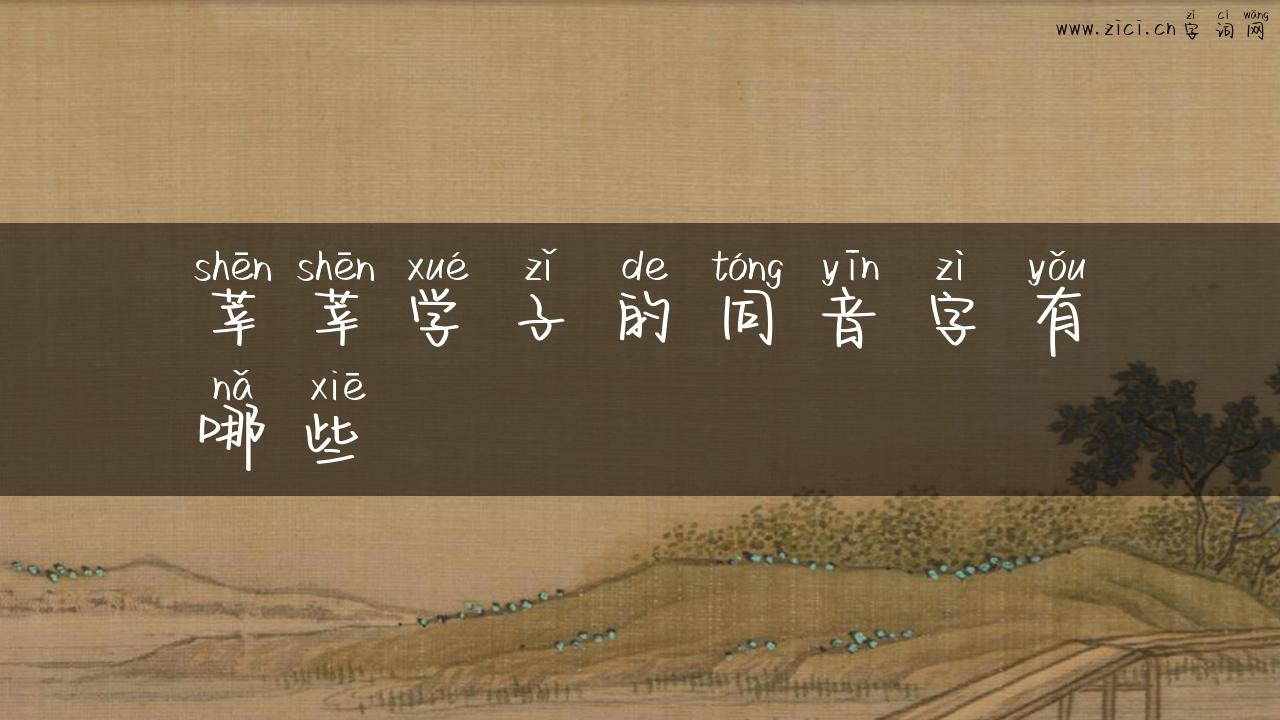 zì cí wǎng
www.zici.cn 字 词 网
shēn shēn xué zǐ de tóng yīn zì yǒu
莘 莘 学 子 的 同 音 字 有
nǎ xiē
哪 些